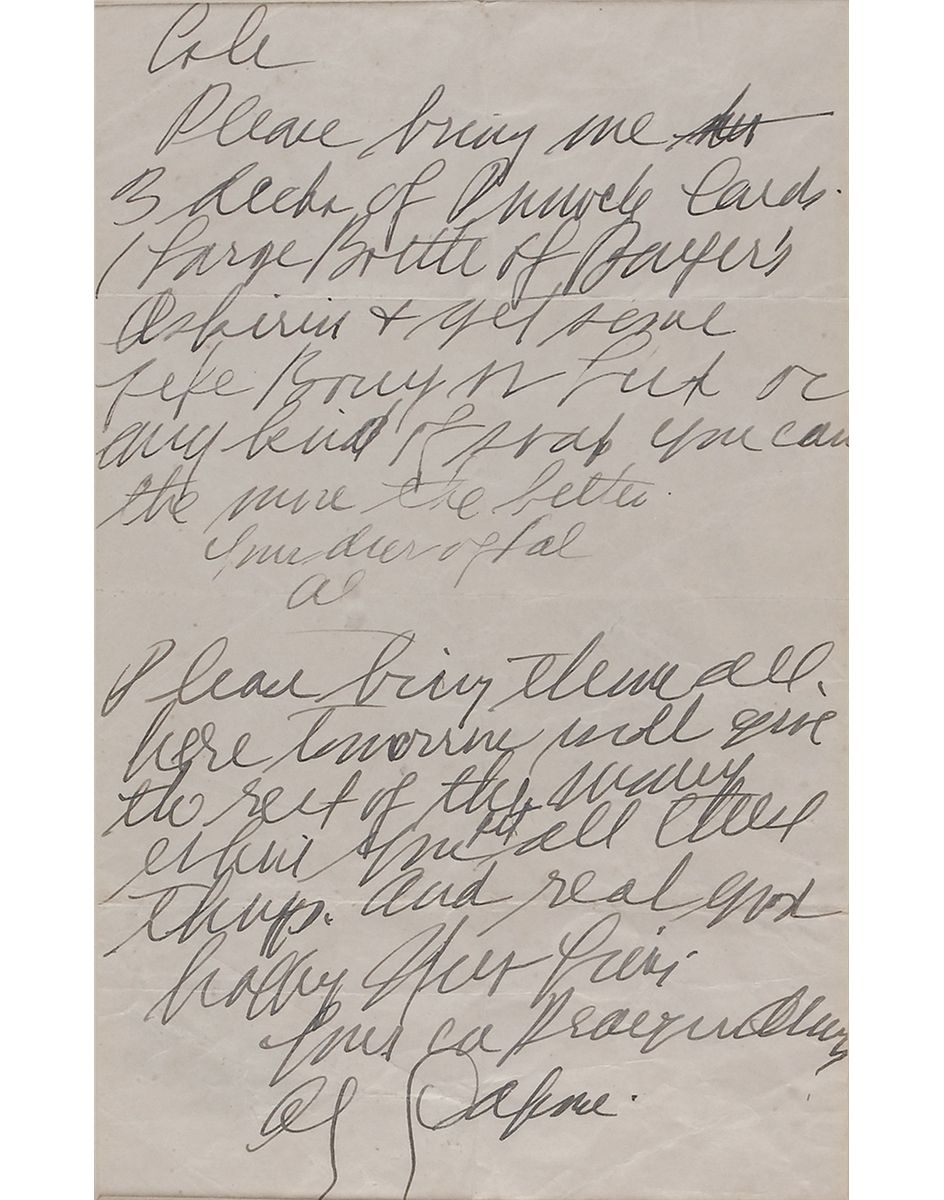 Cole
Please bring me
3 decks of Pinnocle Cards.
1 Large Bottle of Bayer's
Aspirin & get some
or Lux or
any kind of soap you can
the more the better.
Your dear old Pal
Al
Please bring them all.
here tomorrow will give
the rest of the money
when you get all these
things. and real good
happy New Years
Your
Al Capone.